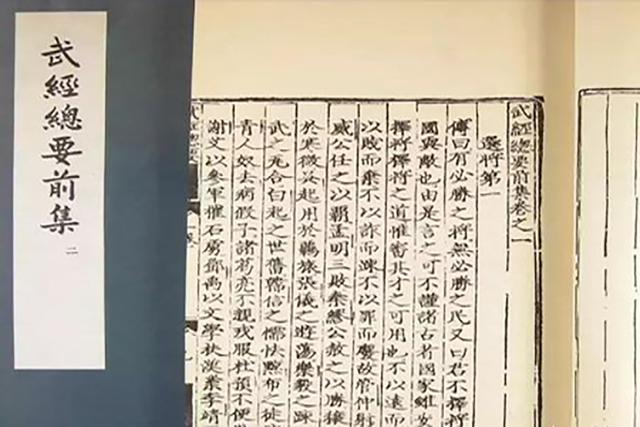 武經總要前集
二
武經總要前集卷之一
選將第一
傳曰有必勝之將無必勝之民又曰君不擇將
國與敵也由是言之可不謹諸古者國家雖安
擇將擇將之道惟審其才之可用也不以遠而
以賤而棄不以詐而疎不以罪而廢故管仲射
威公任之以霸孟明三敗秦繆公赦之以勝穰
於寒微吳起用於羈旅張儀之遊蕩樂毅之疎
武之无合白起之世舊韓信之懦怯黥布之徒
青人奴去病假子諸葛亮不親戎服杜預不便
謝文以參軍摧石虜鄧禹以文學扶漢業李靖